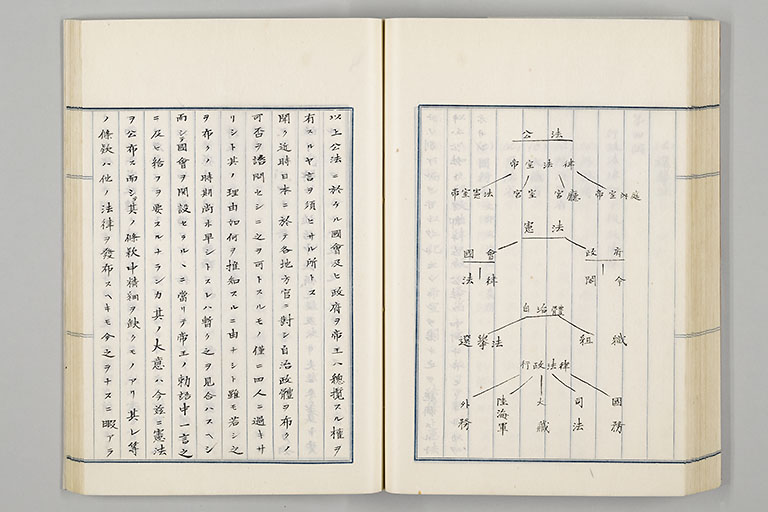 公法
帝室法律
帝室憲法 宮室 宮廳 帝室
憲法
國會 政府
法律 閣令
自治體
選擧法 組職
行政法律
外務 陸海軍 大藏 司法 國務
以上公法ニ於ケル國會及ヒ政府ヲ帝王ハ總攬スル權ヲ
有スルヤ言ヲ須ヒサル所トス
聞ク近時日本ニ於テ各地方官ニ對シ自治政體ヲ布クノ
可否ヲ諮問セシニ之ヲ可トスルモノ僅ニ四人ニ過キサ
リシト其ノ理由如何ヲ推知スルニ由ナシト雖モ若シ之
ヲ布クノ時期尚ホ早シトスレハ暫ク之ヲ見合ハスヘシ
而シテ國會ヲ開設セラルヽニ當リテ帝王ノ勅語中一言之
ニ及ヒ給フヲ要スルナランカ其ノ大意ハ今茲ニ憲法
ヲ公布ス而シテ其ノ條欵中精細ヲ缺クモノアリ其レ等
ノ條欵ハ他ノ法律ヲ發布スヘキモ今之ヲナスニ暇アラ